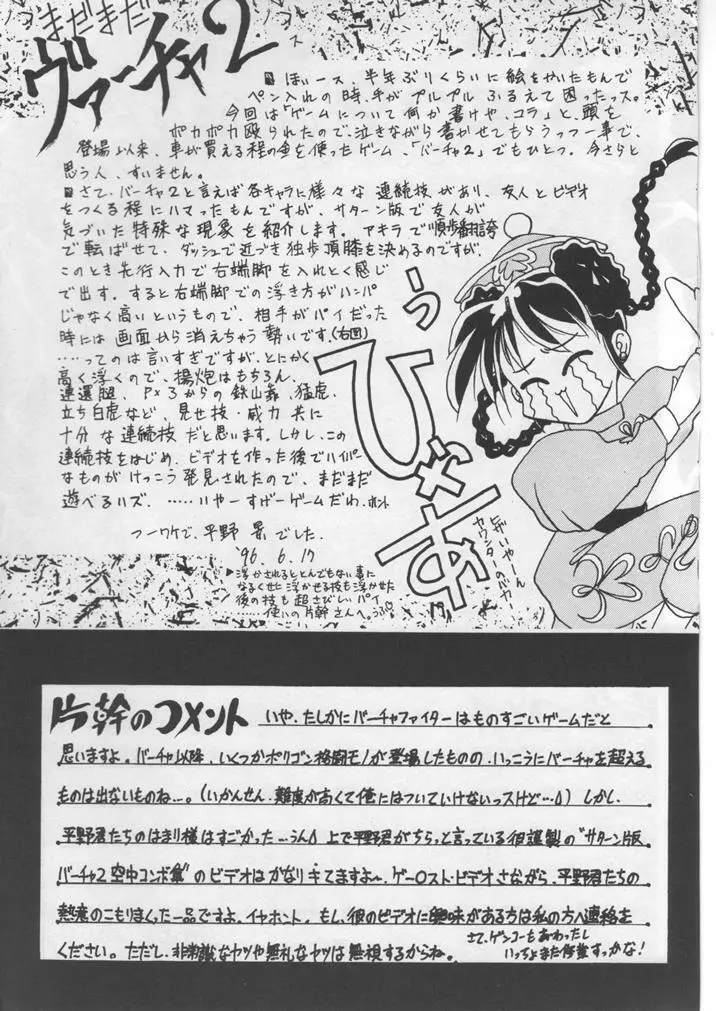 まだまだ
ヴァーチャ2
ほいース、半年ぶりくらいに絵をかいたもんで
ペン入れの時、手がプルプルふるえて困ったっス。
今回は「ゲームについて何か書けや、コラ」と、頭を
ポカポカ殴られたので、泣きながら書かせてもらうっつー事で、
登場以来、車が買える程の金を使ったゲーム、「バーチャ2」でもひとつ。今さらと
思う人、すいません。
さて、バーチャ2と言えば各キャラに様々な連続技があり、友人とビデオ
をつくる程にハマったもんですが、サターン版で友人が
気づいた特殊な現象を紹介します。アキラで順歩翻誇
で転ばせて、ダッシュで近づき独歩頂膝を決めるのですが、
このとき先行入力で右端脚を入れとく感じ
で出す。すると右端脚での浮き方がハンパ
じゃなく高いというもので、相手がパイだった
時には画面から消えちゃう勢いです。(右図)
……ってのは言いすぎですが、とにかく
高く浮くので、揚炮はもちろん、
連還腿、P×3からの鉄山靠、猛虎、
立ち白虎など、見せ技・威力共に
十分な連続技だと思います。しかし、この
連続技をはじめ、ビデオを作った後でハイパー
なものがけっこう発見されたので、まだまだ
遊べるハズ。……いやーすげーゲームだわ、ホント
つーワケで、平野 景でした。
'96.6.17
▶浮かされるととんでもない事に
なるくせに浮かせる技も浮かせた
後の技も超さびしいパイ
……使いの片幹さんへ。うふ♡
うっ
ひゃあ
ヒザいやーん
カウンターのバカ
片幹のコメント
いや、たしかにバーチャファイターはものすごいゲームだと
思いますよ。バーチャ以降、いくつかポリゴン格闘モノが登場したものの、いっこうにバーチャを超える
ものは出ないものね…。(いかんせん、難度が高くて俺にはついていけないっスけど…)しかし、
平野君たちのはまり様はすごかった…うん 上で平野君がちらっと言っている彼謹製の“サターン版
バーチャ2空中コンボ集”のビデオはかなりキてますよ〜、ゲーOスト・ビデオさながら、平野君たちの
熱意のこもりまくった一品ですよ、イヤホント。もし、彼のビデオに興味がある方は私の方へ連絡を
ください。ただし、非常識なヤツや無礼なヤツは無視するからね。
さて、ゲンコーもあがったし
いっちょまた修業すっかな!